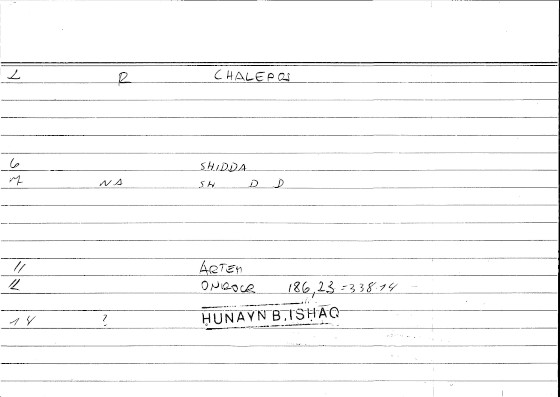 1 R CHALEPOS
6 SHIDDA
7 NA SH D D
11 ARTEM
12 ONIROCR 186,23=338.14
14 ? HUNAYN B. ISHAQ